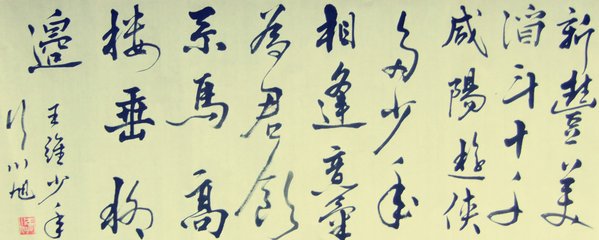 新豐美
酒斗十千
咸陽遊俠
多少年
相逢意氣
為君飲
系馬高
楼垂柳
邊
王維少年
行川旭